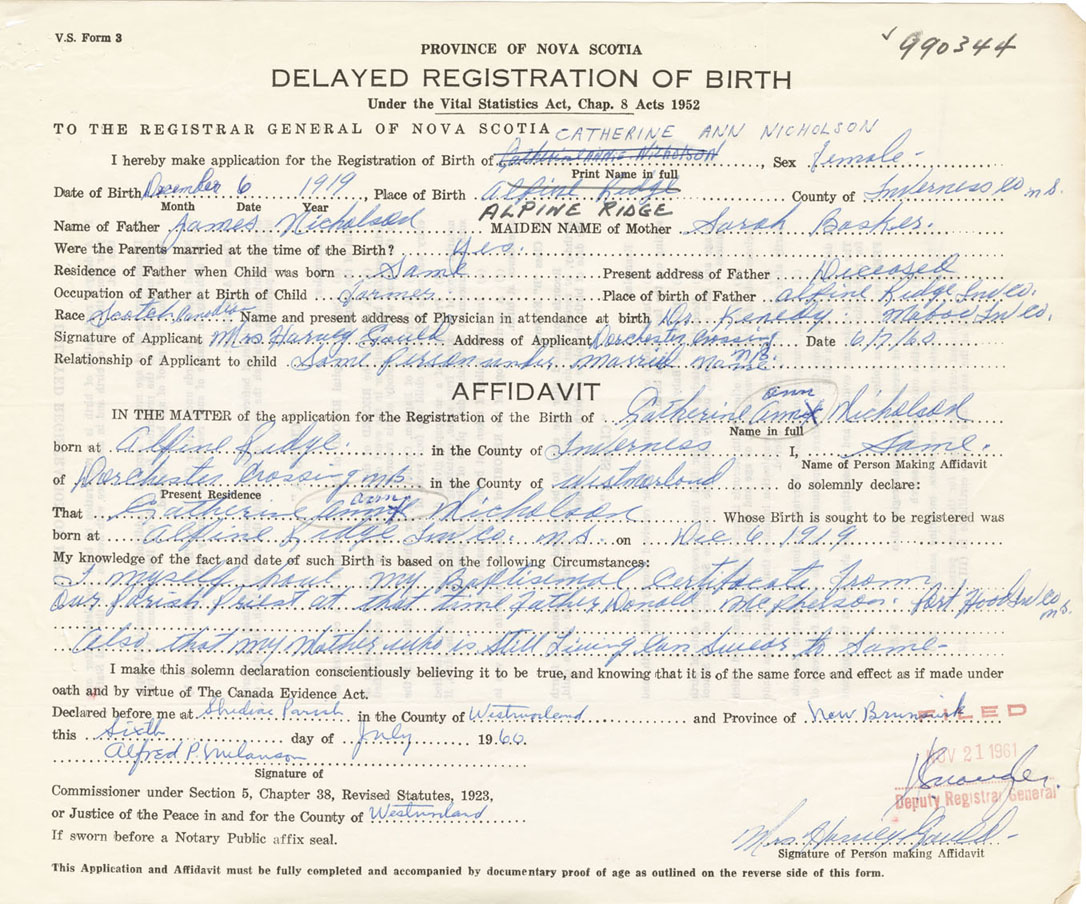 V.S. Form 3
990344
PROVINCE OF NOVA SCOTIA
DELAYED REGISTRATION OF BIRTH
Under the Vital Statistics Act, Chap. 8 Acts 1952
TO THE REGISTRAR GENERAL OF NOVA SCOTIA CATHERINE ANN NICHOLSON
I hereby make application for the Registration of Birth of Catherine Annie Nicholson, Sex Female
Print Name in full
Date of Birth December 6 1919, Place of Birth Alpine Ridge County of Inverness Co N.S.
Month Date Year ALPINE RIDGE
Name of Father James Nicholson MAIDEN NAME of Mother Sarah Basker.
Were the Parents married at the time of the Birth? Yes.
Residence of Father when Child was born Same Present address of Father Diceased
Occupation of Father at Birth of Child Farmer Place of birth of Father Alpine Ridge Inv Co.
Race Scotch Name and present address of Physician in attendance at birth Dr. Kenedy. Mabou Inv Co.
Signature of Applicant Mrs Harvey Gauld Address of Applicant Dorchester Crossing N.B. Date 6/7/60
Relationship of Applicant to child Same Person under Married Name
AFFIDAVIT
IN THE MATTER of the application for the Registration of the Birth of Catherine Ann Nicholson
Name in full
born at Alpine Ridge. in the County of Inverness I, Same.
Name of Person Making Affidavit
of Dorchester Crossing N.B. in the County of Westmorland do solemnly declare:
Present Residence
That Catherine Ann Nicholson Whose Birth is sought to be registered was
born at Alpine Ridge Inv Co. N.S. on Dec 6 1919
My knowledge of the fact and date of such Birth is based on the following Circumstances:
I myself have my Baptisemal Certificate from
Our Parish Priest at that time Father Donald McPherson. Port Hood Inv Co N.S.
Also that my Mother who is still Living Can Swear to Same
I make this solemn declaration conscientiously believing it to be true, and knowing that it is of the same force and effect as if made under
oath and by virtue of The Canada Evidence Act.
Declared before me at Shediac Parish in the County of Westmorland and Province of New Brunswick
FILED
this Sixth day of July 1960
NOV 21 1961
Alfred P. Melanson
Signature of
Deputy Registrar General
Commissioner under Section 5, Chapter 38, Revised Statutes, 1923,
or Justice of the Peace in and for the County of Westmorland
If sworn before a Notary Public affix seal.
Mrs Harvey Gauld
Signature of Person making Affidavit
This Application and Affidavit must be fully completed and accompanied by documentary proof of age as outlined on the reverse side of this form.